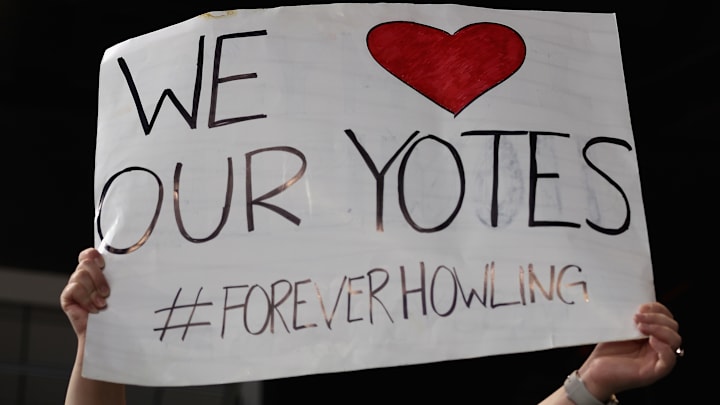 WE ❤
OUR YOTES
#FOREVERHOWLING